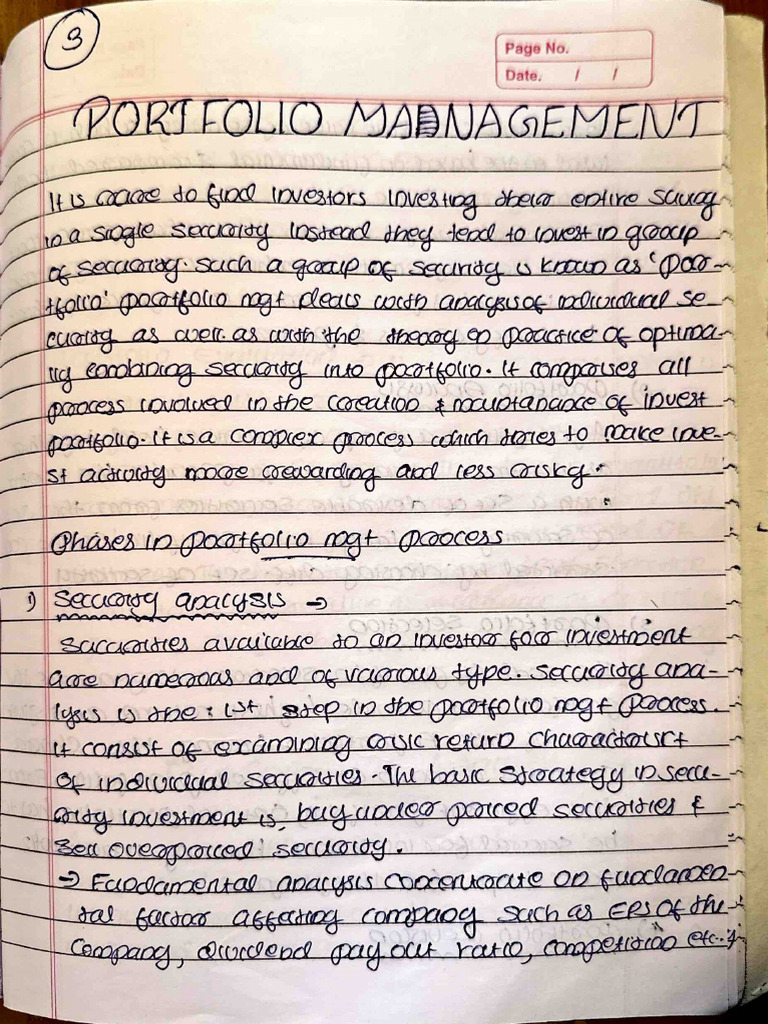 3
Page No.
Date. / /
PORTFOLIO MANAGEMENT
It is rare to find investors investing their entire saving
in a single security instead they tend to invest in group
of security. Such a group of security is known as 'por-
tfolio' portfolio mgt deals with analysis of individual se-
curity as well as with the theory & practice of optima-
lly combining security into portfolio. It comprises all
process involved in the creation & maintanance of invest
portfolio. It is a complex process which tries to make inve-
st activity more rewarding and less risky.
Phases in portfolio mgt process
1) Security analysis →
Securities available to an investor for investment
are numerous and of various type. Security ana-
lysis is the 1st step in the portfolio mgt process.
It consist of examining risk return charactorist
of individual securities. The basic strategy in secu-
rity investment is buy under priced securities &
sell overpriced security.
→ Fundamental analysis concentrate on fundamen
tal factor affecting company such as EPS of the
company, dividend pay out ratio, competition etc.